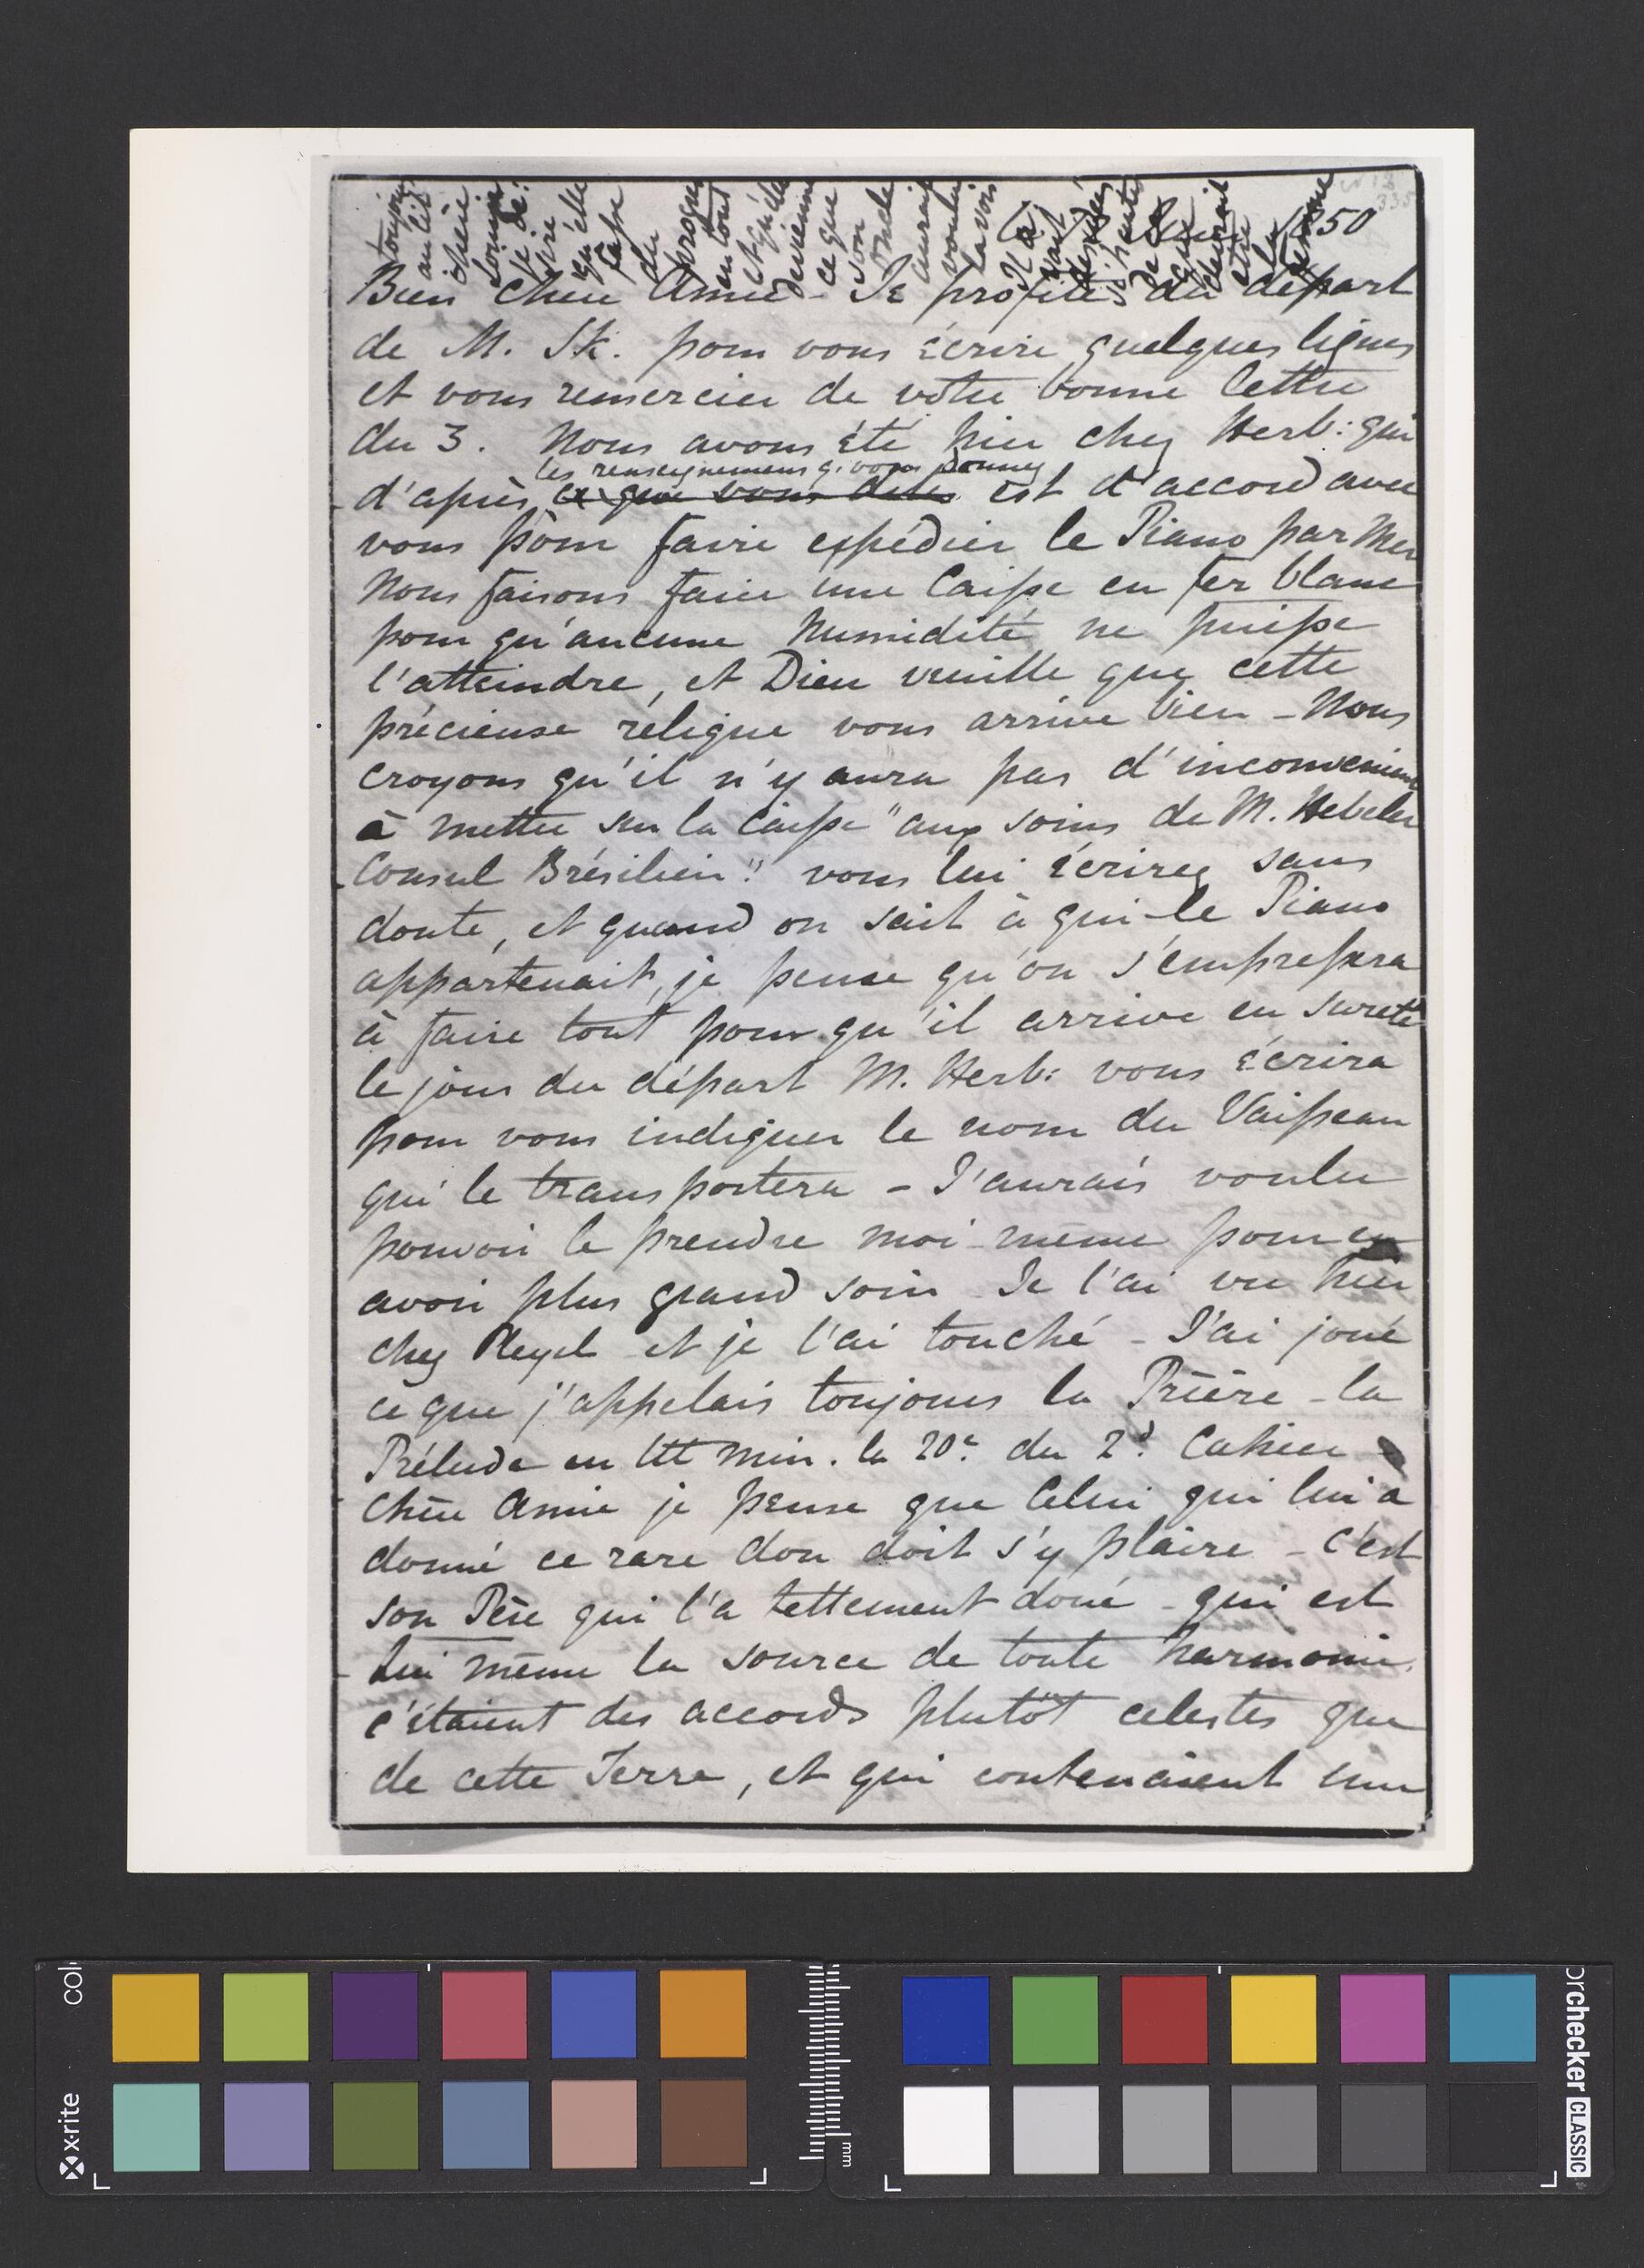 toujours
au lit
chère
soigner
Je dé:
sire
qu'elle
fasse
du
progrès
en tout
et qu'elle
devienne
ce que
son
oncle
aurait
voulu
la voir
Il a
tant
de sa
que
devrait
être
la
1850
Bien chère Amie - Je profite du départ
de M. St. pour vous écrire quelques lignes
et vous remercier de votre bonne lettre
du 3. Nous avons été hier chez Herb: qui
les renseignemens q. vous donnez
d'après ce que vous dites est d'accord avec
vous pour faire expédier le Piano par Mer
Nous faisons faire une Caisse en fer blanc
pour qu'aucune humidité ne puisse
l'atteindre, et Dieu veuille que cette
précieuse rélique vous arrive bien - Nous
croyons qu'il n'y aura pas d'inconvenient
à mettre sur la Caisse "aux soins de M. Hebeler
Consul Brésilien" vous lui écrirez sans
doute, et quand on sait à qui le Piano
appartenait, je pense qu'on s'empressera
à faire tout pour qu'il arrive en sureté
le jour du départ M. Herb: vous écrira
pour vous indiquer le nom du Vaisseau
qui le transportera - J'aurais voulu
pouvoir le prendre moi-même pour en
avoir plus grand soin Je l'ai vu hier
chez Pleyel et je l'ai touché - J'ai joué
ce que j'appelais toujours la Prière - la
Prélude en Ut min. la 20e du 2d Cahier
Chère Amie je pense que Celui qui lui a
donné ce rare don doit s'y plaire - C'est
son Père qui l'a tellement doué - qui est
Lui même la source de toute harmonie.
c'étaient des accords plutôt celestes que
de cette Terre, et qui contenaient une
x-rite
colorchecker CLASSIC
mm